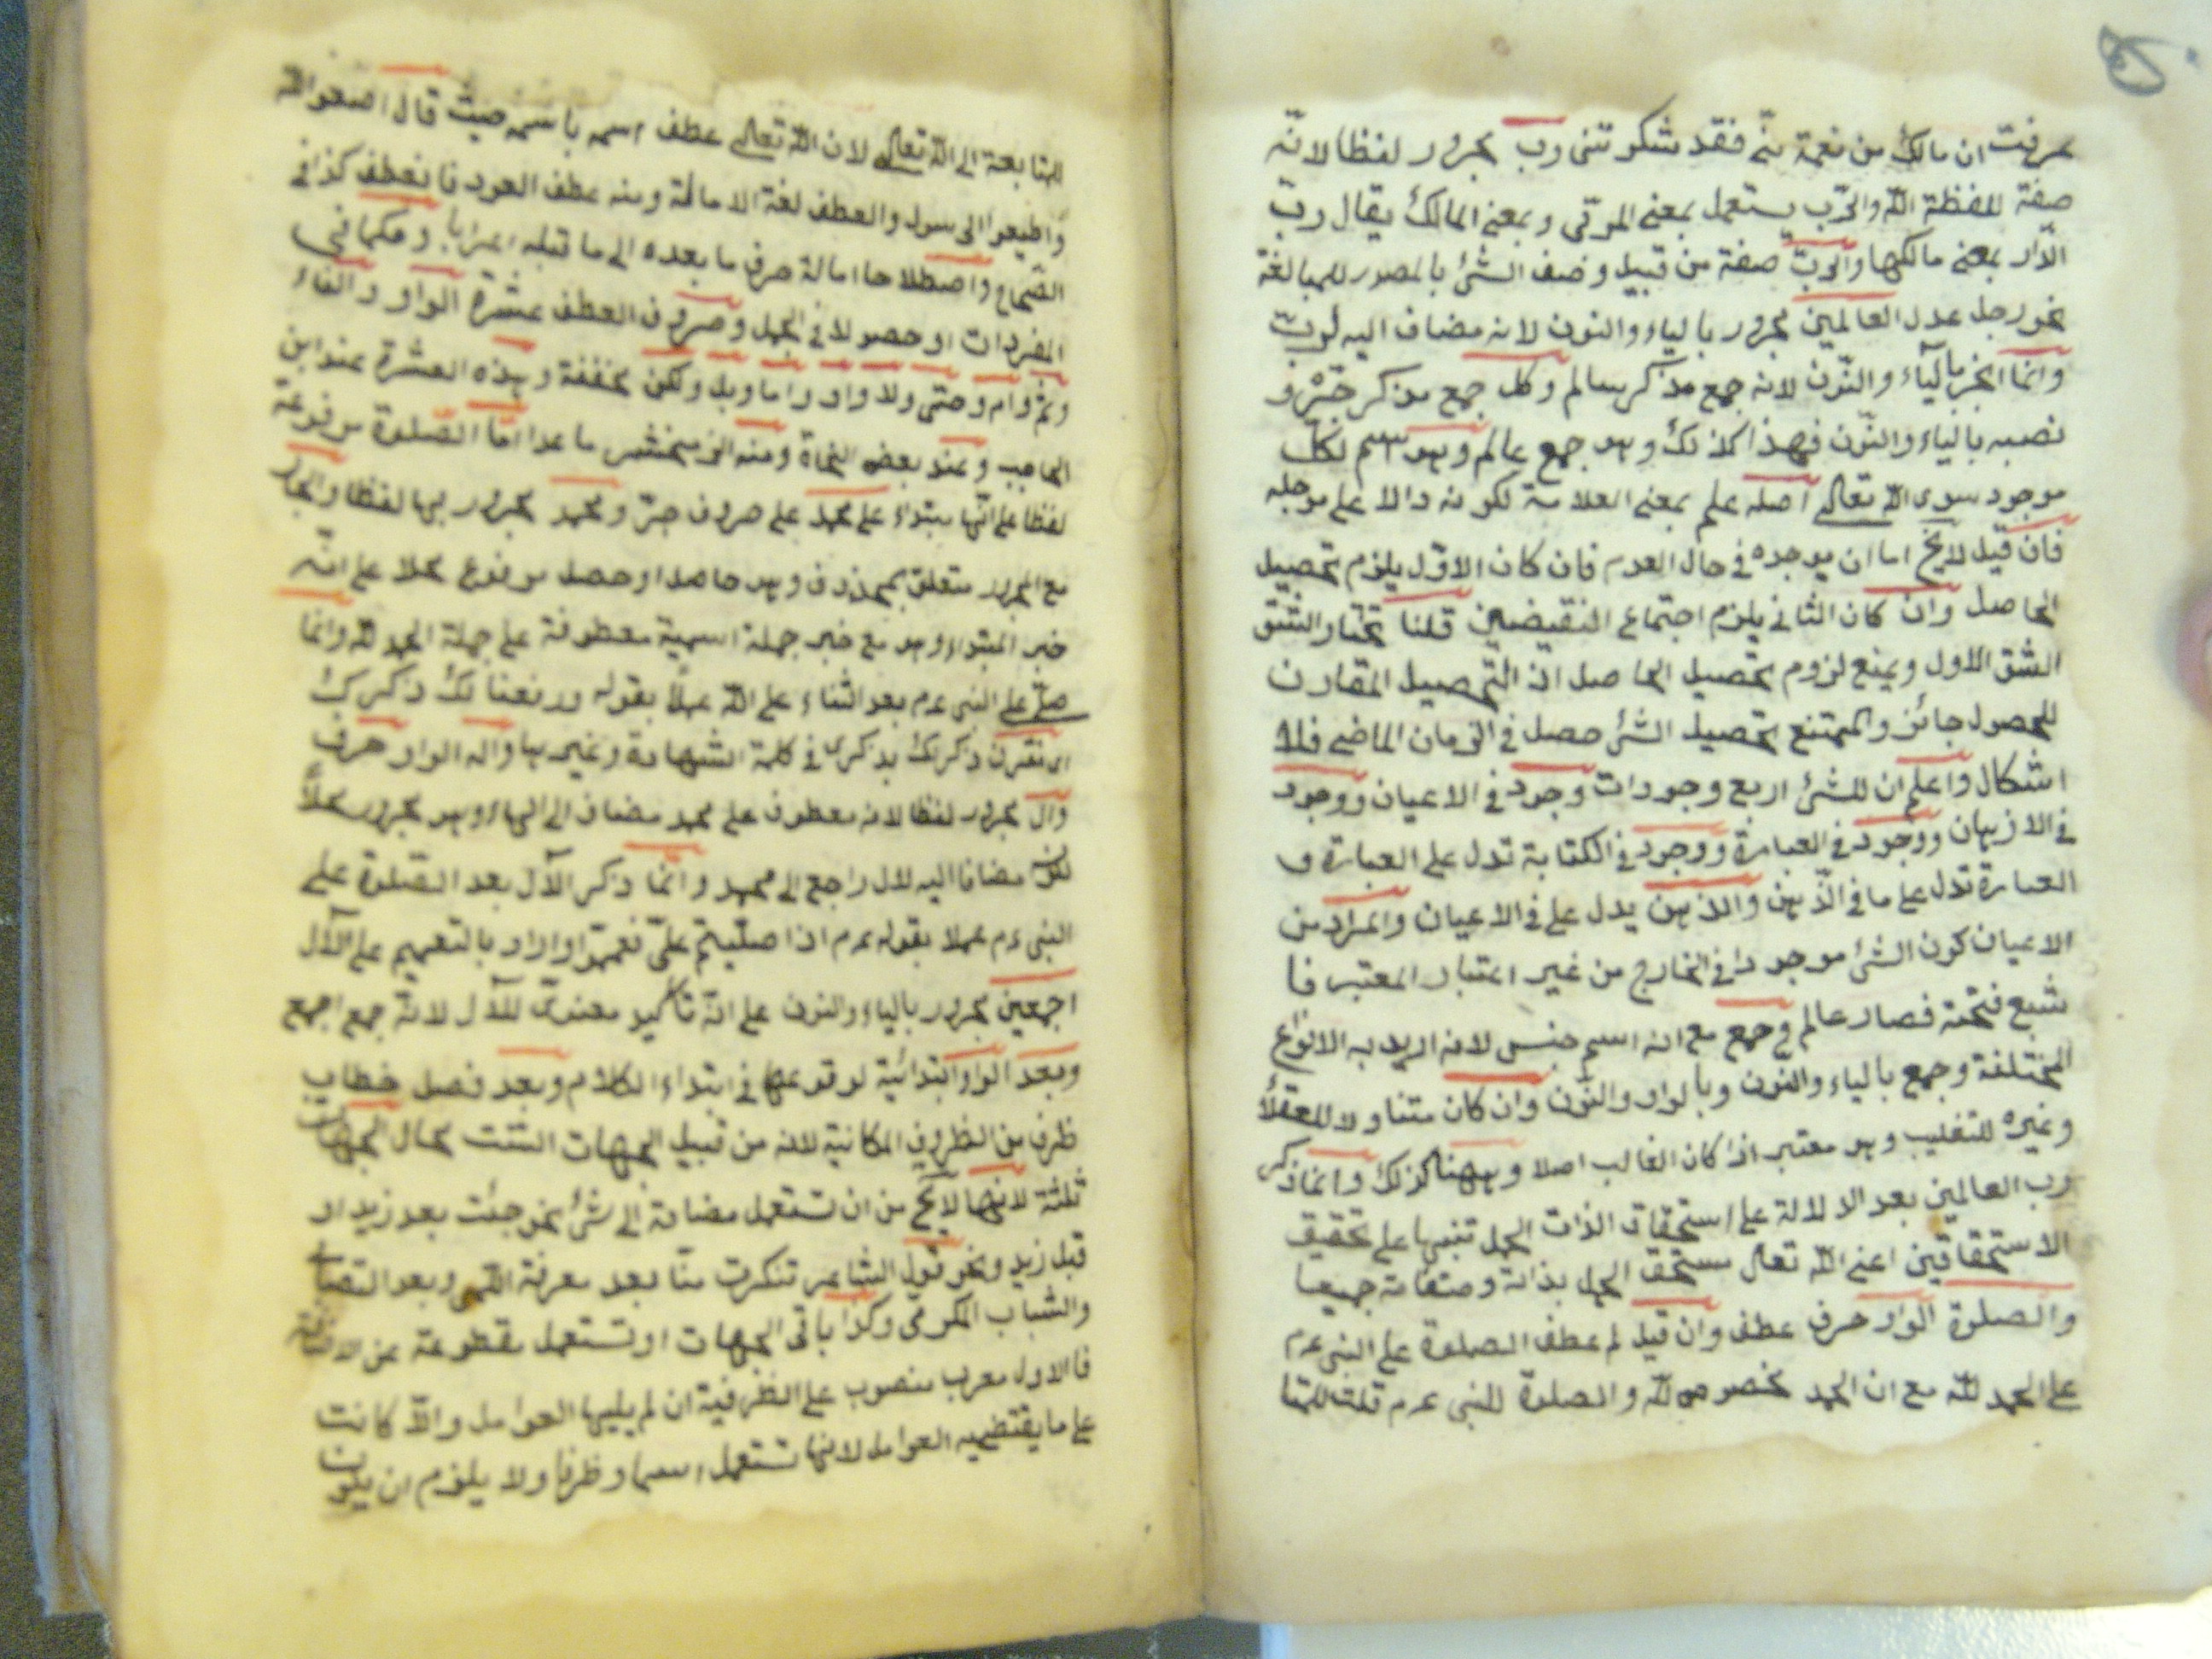 عرفت ان مالك من نعمة منّى فقد شكرتنى رب مجرور لفظا لانّه
صفة للفظة اللّه والرّب يستعمل بمعنى المربّى وبمعنى المالك يقال ربّ
الدّار بمعنى مالكها والربّ صفة من قبيل وصف الشئ بالمصدر للمبالغة
نحو رجل عدل العالمين مجرور بالياء والنون لانه مضاف اليه لربّ
وانما انجر بالياء والنّون لانه جمع مذكر سالم وكل جمع مذكر جرّه و
نصبه بالياء والنّون فهذا كذلك وهو جمع عالم وهو اسم لكل
موجود سوى اللّه تعالى اصله علم بمعنى العلامة لكونه دالا على موجده
فان قيل لايخ اما ان يوجده فى حال العدم فان كان الاوّل يلزم تحصيل
الحاصل وان كان الثانى يلزم اجتماع النقيضين قلنا نختار الشق
الشق الاول ويمنع لزوم تحصيل الحاصل اذ التّحصيل المقارن
للحصول جائز والممتنع تحصيل الشئ حصل فى الزمان الماضى فلا
اشكال واعلم ان للشئ اربع وجودات وجود فى الاعيان ووجود
فى الاذهان ووجود فى العبارة ووجود فى الكتابة تدل على العبارة و
العبارة تدل على ما فى الذّهن والذهن يدل على فى الاعيان والمراد من
الاعيان كون الشئ موجودا فى الخارج من غير اعتبار المعتبر فا
شبع فتحته فصار عالم وجمع مع انه اسم جنس لانه اريد به الانواع
المختلفة وجمع بالياء والنون وبالواو والنّون وان كان متناولا للعقلاء
وغيره للتغليب وهو معتبر اذا كان الغالب اصلا وههنا كذلك وانما ذكر
رب العالمين بعد الدلالة على استحقاق الذات الحمد تنبيها على تحقيق
الاستحقاقين اعنى اللّه تعالى مستحق الحمد بذاته وصفاته جميعا
والصلوة الواو حرف عطف وان قيل لم عطف الصلوة على النبى عم
على الحمد للّه مع ان الحمد مخصوص للّه والصلوة للنبى عم قلت للمتا
للمتابعة الى اللّه تعالى لان اللّه تعالى عطف اسمه باسمه حيث قال اطيعوا اللّه
واطيعوا الرسول والعطف لغة الامالة ومنه عطف العود فانعطف كذا فى
الصّحاح واصطلاحا امالة حرف ما بعده الى ما قبله اعرابا وحكما فى
المفردات او حصولا فى الجمل وحروف العطف عشرة الواو والفاء
وثم وام وحتى ولا واو واما وبل ولكن مخففة وهذه العشرة عند ابن
الحاجب وعند بعض النحاة ومنه الزمخشرى ما عدا امّا الصّلوة مرفوعة
لفظا على انّها مبتداء على محمد على حرف جرّ ومحمد مجرور بها لفظا والجار
مع المجرور متعلق بمحذوف وهو حاصل او حصل مرفوع محلا على انّه
خبر المبتداء وهو مع خبر جملة اسمية معطوفة على جملة الحمد للّه وانما
صلّى على النبى عم بعد الثناء على اللّه عملا بقوله ورفعنا لك ذكرك
اى نقرن ذكرك بذكرى فى كلمة الشهادة وغيرها واله الواو حرف
وال مجرور لفظا لانه معطوف على محمد مضاف الى الهاء وهو مجرور محلا
لكون مضافا اليه لال راجع الى محمد وانّما ذكر الآل بعد الصّلوة على
النبى عم عملا بقوله عم اذا صلّيتم علىّ فعمّموا واراد بالتعميم على الآل
اجمعين مجرور بالياء والنون على انّه تأكيد معنوىّ للآل لانّه جمع اجمع
وبعد الواو ابتدائية لوقوعها فى ابتداء الكلام وبعد فصل خطاب
ظرف من الظروف المكانية لانه من قبيل الجهات الستّ بحال الجهات
ثلثة لانّها لايخ من ان تستعمل مضافة الى شئ نحو جئت بعد زيد او
قبل زيد ونحو قول الشاعر تنكرت منّا بعد معرفة اللّمى وبعد التصابى
والشباب المكرمى وكذا باقى الجهات او تستعمل مقطوعة عن الاضافة
فالاول معرب منصوب على الظرفية ان لم يليها العوامل والّا كانت
على ما يقتضيه العوامل لانها تستعمل اسما وظرفا ولا يلزم ان يكون